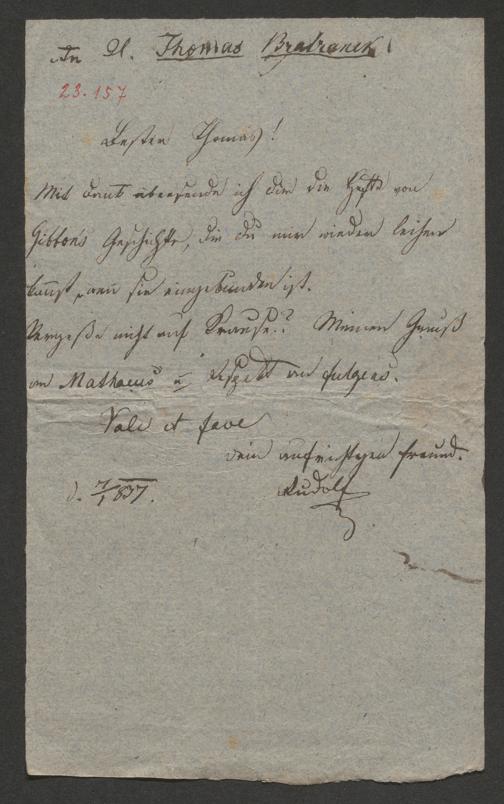 An H. Thomas Bratranek
23.157
Bester Thomas!
Mit Dank übersende ich dir die Hefte von
Gibbons Geschichte, die du mir wieder leihen
kannst, wenn sie eingebunden ist.
Vergeße nicht auf Krause?? Meinen Gruß
an Mathaeus u Respekt an
Vale et fave
dein aufrichtigen Freund.
Rudolf
d. 7/1 837.